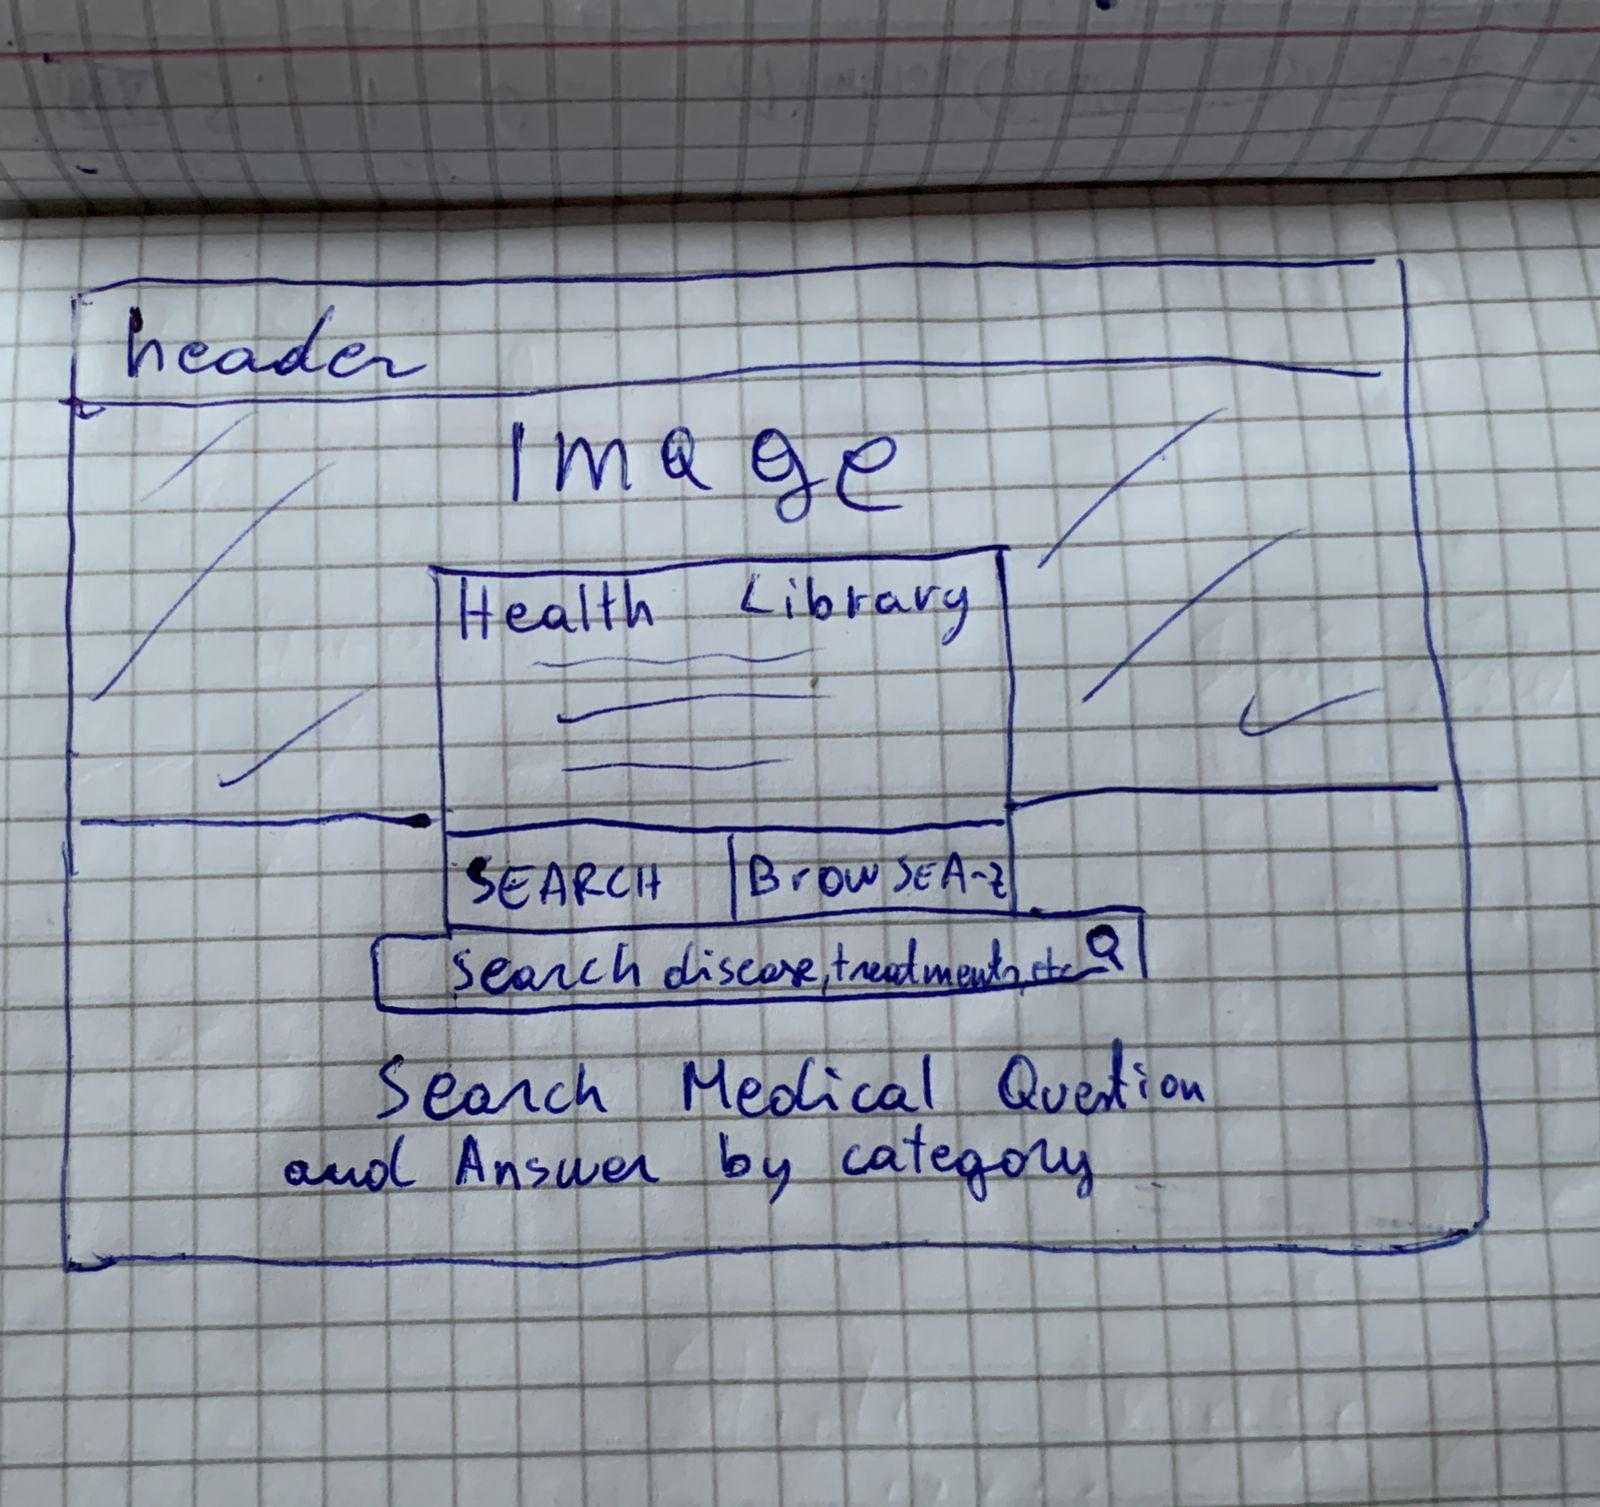 header
Image
Health Library
SEARCH BrowSE A-Z
Search disease, treatments, etc
Search Medical Question
and Answer by category